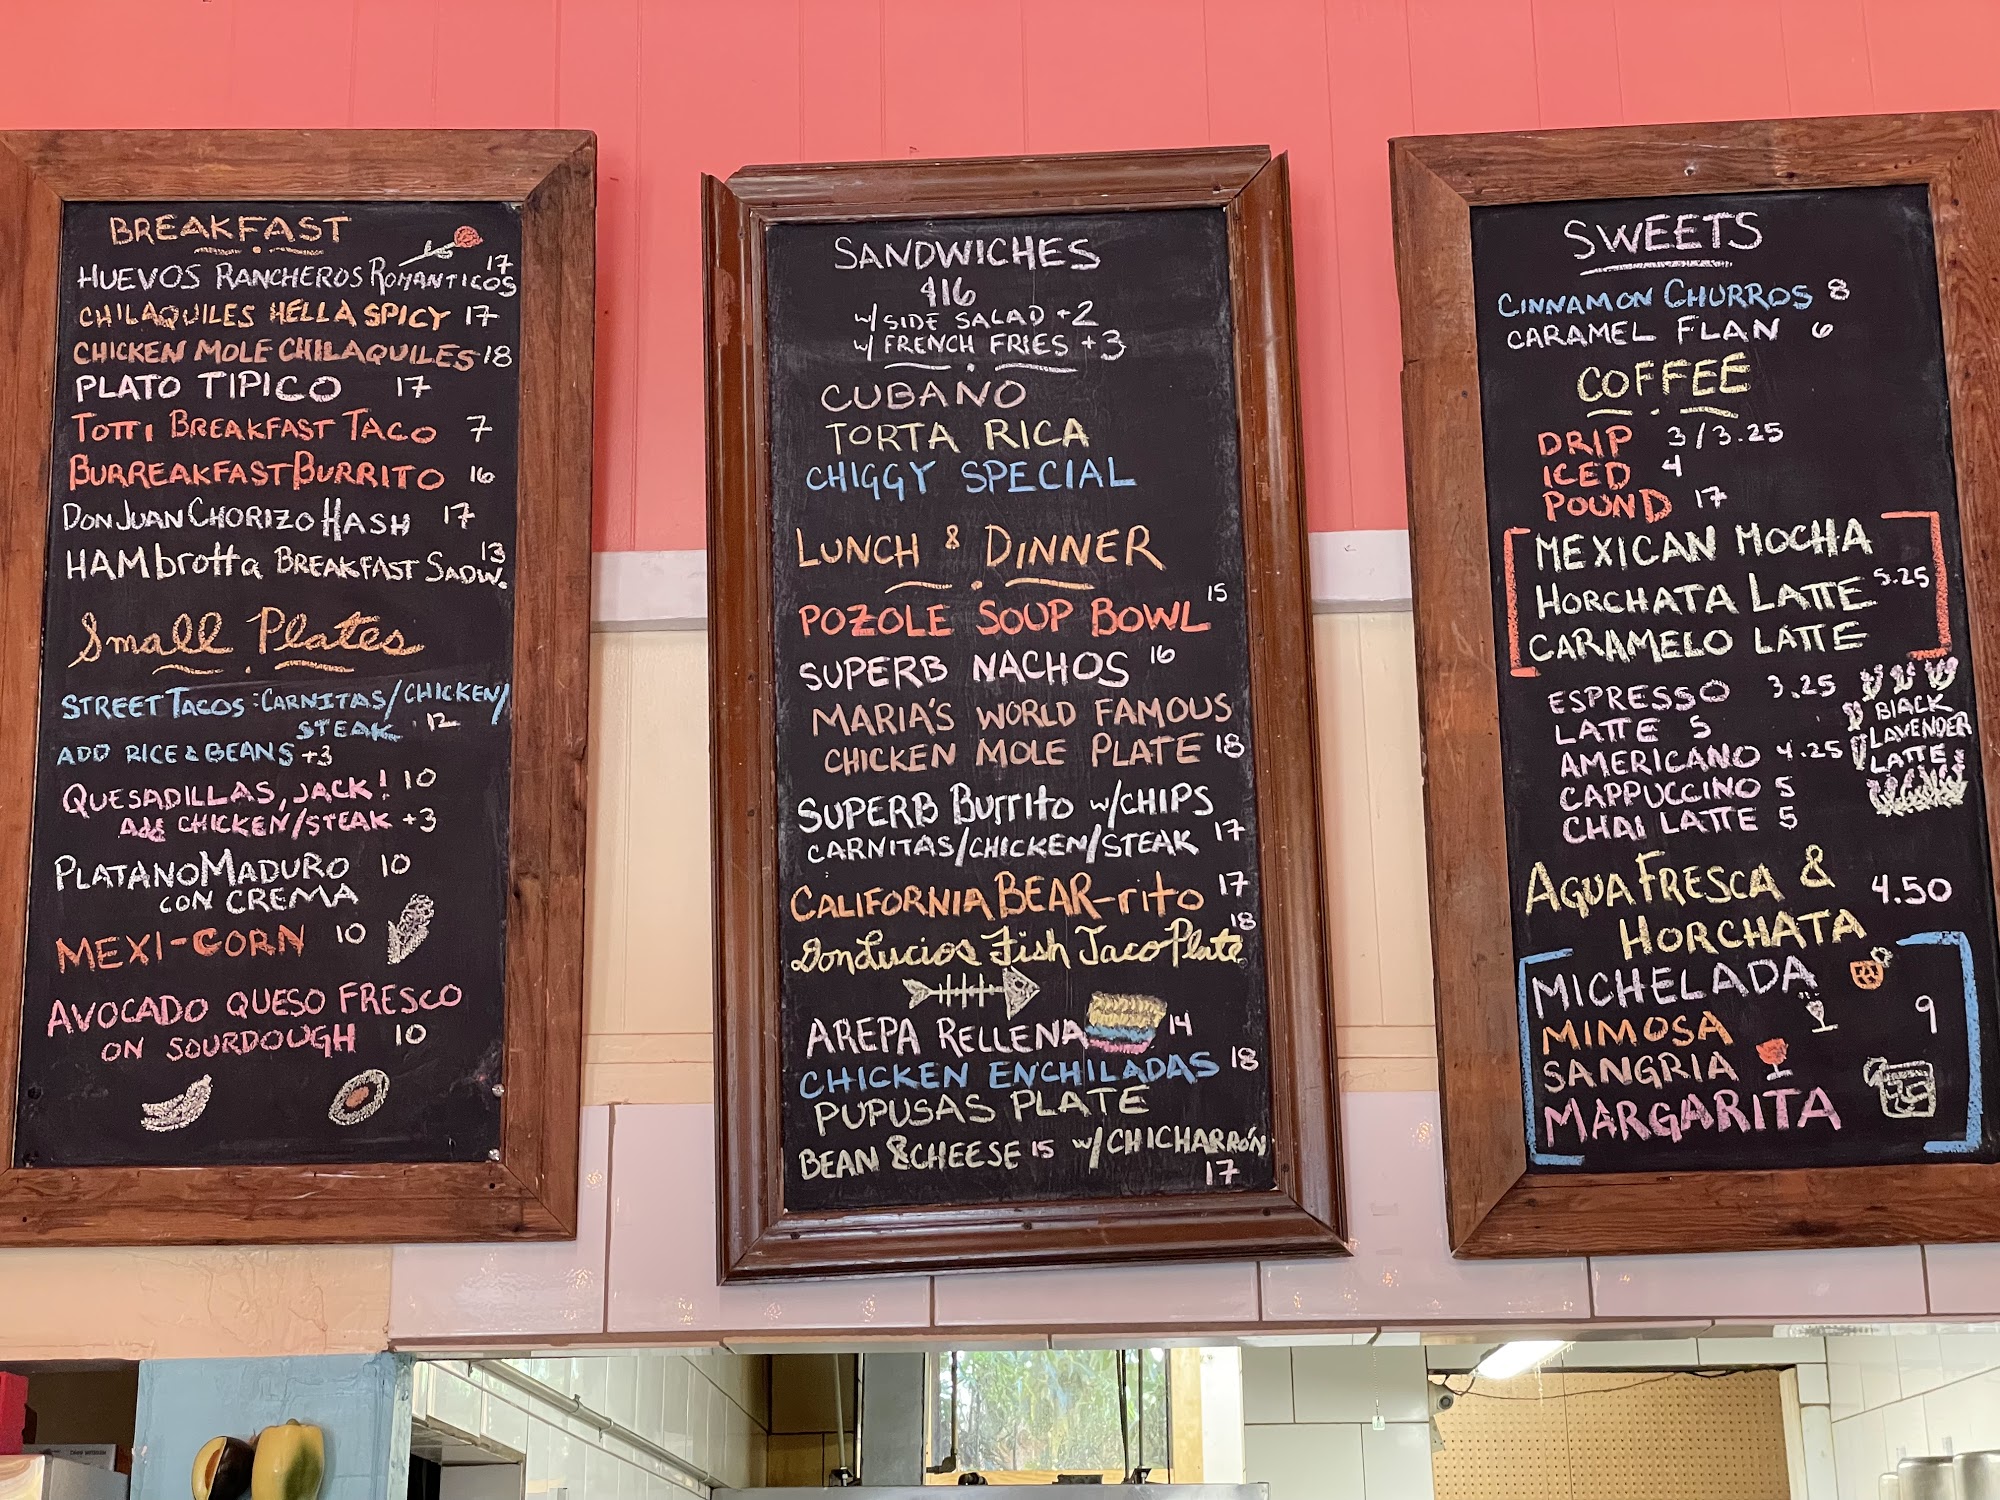 BREAKFAST
HUEVOS RANCHEROS ROMANTICOS 17
CHILAQUILES HELLA SPICY 17
CHICKEN MOLE CHILAQUILES 18
PLATO TIPICO 17
TOTTI BREAKFAST TACO 7
BURREAKFAST BURRITO 16
DON JUAN CHORIZO HASH 17
HAMbrotta BREAKFAST SADW. 13
Small Plates
STREET TACOS: CARNITAS/CHICKEN/
STEAK 12
ADD RICE & BEANS +3
QUESADILLAS, JACK! 10
Add CHICKEN/STEAK +3
PLATANO MADURO 10
CON CREMA
MEXI-CORN 10
AVOCADO QUESO FRESCO
ON SOURDOUGH 10
SANDWICHES
$16
w/ SIDE SALAD +2
w/ FRENCH FRIES +3
CUBANO
TORTA RICA
CHIGGY SPECIAL
LUNCH & DINNER
POZOLE SOUP BOWL 15
SUPERB NACHOS 16
MARIA'S WORLD FAMOUS
CHICKEN MOLE PLATE 18
SUPERB BURRITO w/CHIPS
CARNITAS/CHICKEN/STEAK 17
CALIFORNIA BEAR-rito 17
Don Lucios Fish Taco Plate 18
AREPA RELLENA 14
CHICKEN ENCHILADAS 18
PUPUSAS PLATE
BEAN & CHEESE 15 w/CHICHARRÓN
17
SWEETS
CINNAMON CHURROS 8
CARAMEL FLAN 6
COFFEE
DRIP 3/3.25
ICED 4
POUND 17
MEXICAN MOCHA
HORCHATA LATTE 5.25
CARAMELO LATTE
ESPRESSO 3.25
LATTE 5
AMERICANO 4.25
CAPPUCCINO 5
CHAI LATTE 5
BLACK
LAVENDER
LATTE
AGUA FRESCA &
HORCHATA 4.50
MICHELADA
MIMOSA 9
SANGRIA
MARGARITA